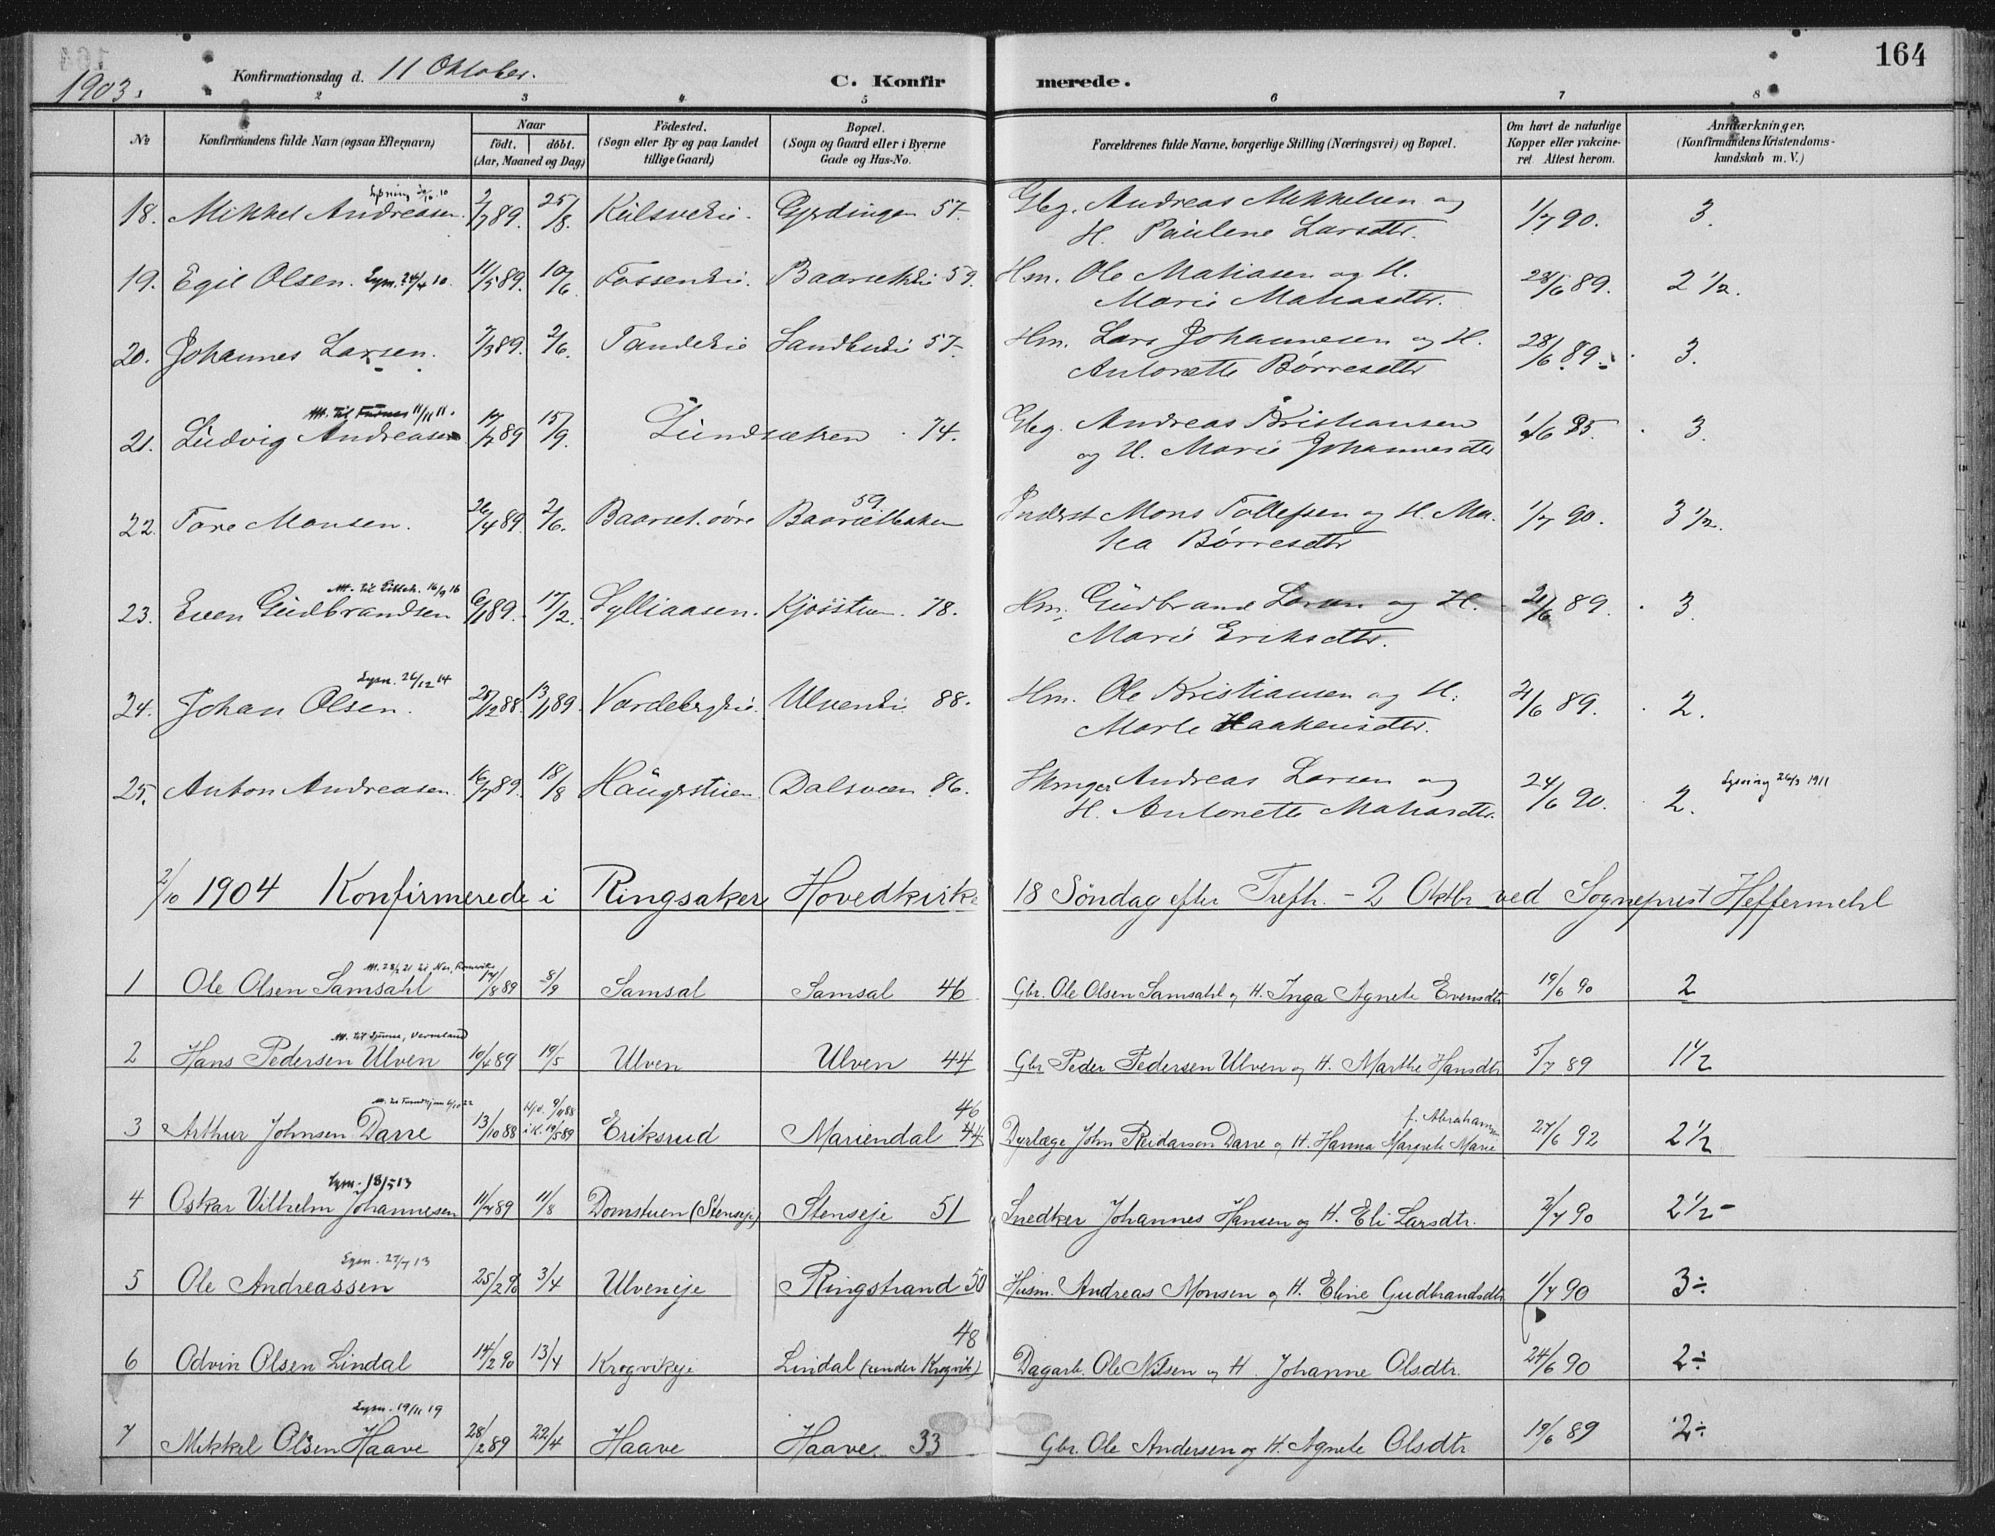 164
1903. Konfirmationsdag d. 11 Oktober. C. Konfirmerede.
2 3 4 5 6 7 8
No Konfirmandens fulde Navn (ogsaa Efternavn) Naar født. døbt. (Aar, Maaned og Dag) Fødested. (Sogn eller By og paa Landet tillige Gaard) Bopæl. (Sogn og Gaard eller i Byerne Gade og Hus-No. Forældrenes fulde Navne, borgerlige Stilling (Næringsvei) og Bopæl. Om havt de naturlige Kopper eller vakcineret Attest herom. Anmærkninger. (Konfirmandens Kristendomskundskab m. V.)
18. Mikkel Andreassen 2/7 89 25/8 Gyrdingen 57. Gbg. Andreas Mikkelsen og
H. Paulene Larsdtr. 1/7 90. 3.
19. Egil Olsen. Lysn. 24/4 10. 11/5 89. 10/6 Fosseneie. Baarseteie 59. Hm. Ole Matiasen og H.
Marie Matiasdtr. 28/6 89. 2 1/2.
20. Johannes Larsen. 7/3 89. 2/6. Tandeeie 57. Hm. Lars Johannesen og H.
Antonette Børresdtr 28/6 89. 3.
Att. til Furnes 11/11 11.
21. Ludvig Andreasen 17/7 89 15/9. Lundsæteren 74. Gbg. Andreas Kristiansen
og H. Marie Johannesdtr 3.
22. Tore Monsen. 26/4 89. 2/6. Baarset øvre 59 Baarsetbaken Inderst Mons Tollefsen og H. Ma-
Børresdtr 1/7 90. 3 1/2.
16/9 16
23. Even Gudbrandsen 6/1 89. 17/2. Sylliaasen. Kjøistuen 78. Hm. Gudbrand Larsen og H.
Marie Eriksdtr. 21/6 89. 3
Lysn. 26/12 14
24. Johan Olsen. 28/12 88. 13/1 89. Vardebergeie. Ulveneie. 88. Hm. Ole Kristiansen og H.
Marte Haakensdtr. 21/6 89. 2.
25. Anton Andreasen 16/7 89. 18/8 Haugstuen Dalsveen 86. Andreas Larsen og
H. Antonette Matiasdtr. 24/6 90. 2. Lysning 26/3 1911
2/10 1904 Konfirmerede i Ringsaker Hovedkirke 18 Søndag efter Trefh. - 2 Oktbr ved Sogneprest Heffermehl
1 Ole Olsen Samsahl 17/8 89 8/9 Samsal Samsal 46 Gbr. Ole Olsen Samsahl og H. Inga Agnete Evensdtr 19/6 90 2
2 Hans Pedersen Ulven 10/4 89 19/5 Ulven Ulven 44 Gbr Peder Pedersen Ulven og H. Marthe Hansdtr 5/7 89 1 1/2
3 Arthur Johnsen Darre 13/10 88 Hjd. 9/11 88 i K. 19/5 89 Eriksrud Mariendal 46 44 Dyrlæge John Reidarson Darre og H. Hanna Margrete Marie f. Abrahamsen 27/6 92 2 1/2
Lysn. 18/5 13
4 Oskar Vilhelm Johannesen 11/7 89 11/8 Domstuen (Stenseje) Stenseje 51 Snedker Johannes Hansen og H. Eli Larsdtr. 2/7 90 2 1/2 -
Lysn. 27/7 13
5 Ole Andreassen 25/2 90 3/4 Ulveneje Ringstrand 50 Husm. Andreas Monsen og H. Eline Gudbrandsdtr 1/7 90 3÷
6 Odvin Olsen Lindal 14/2 90 13/4 Krogvikeje 48 Lindal (under Krogvik) Dagarb. Ole Nilsen og H. Johanne Olsdtr. 24/6 90 2÷
Lysn. 19/11 19
7 Mikkel Olsen Haave 28/2 89 22/4 Haave Haave 33 Gbr. Ole Andersen og H. Agnete Olsdtr 19/6 89 2÷